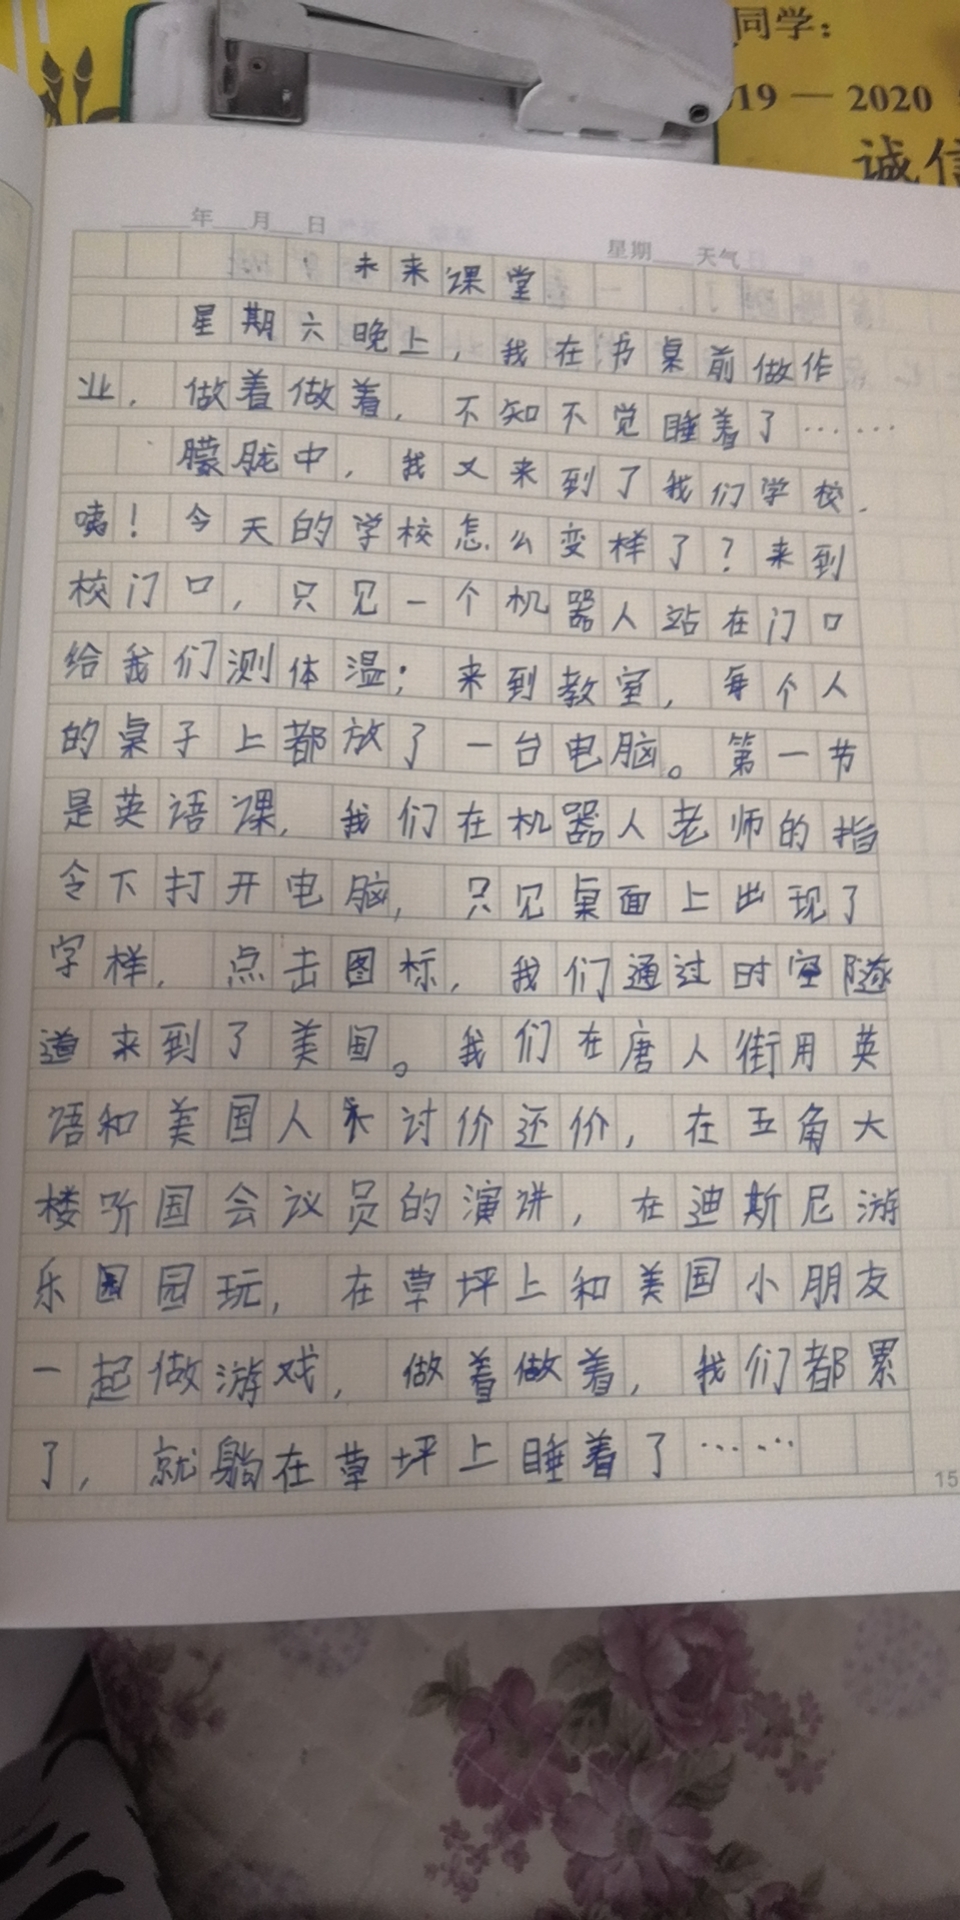 同学：
19 — 2020
诚信
年 月 日 星期 天气
未来课堂
星期六晚上，我在书桌前做作
业，做着做着，不知不觉睡着了……
朦胧中，我又来到了我们学校，
咦！今天的学校怎么变样了？来到
校门口，只见一个机器人站在门口
给我们测体温；来到教室，每个人
的桌子上都放了一台电脑。第一节
是英语课，我们在机器人老师的指
令下打开电脑，只见桌面上出现了
字样，点击图标，我们通过时空隧
道来到了美国。我们在唐人街用英
语和美国人讨价还价，在五角大
楼听国会议员的演讲，在迪斯尼游
乐园玩，在草坪上和美国小朋友
一起做游戏，做着做着，我们都累
了，就躺在草坪上睡着了……
15